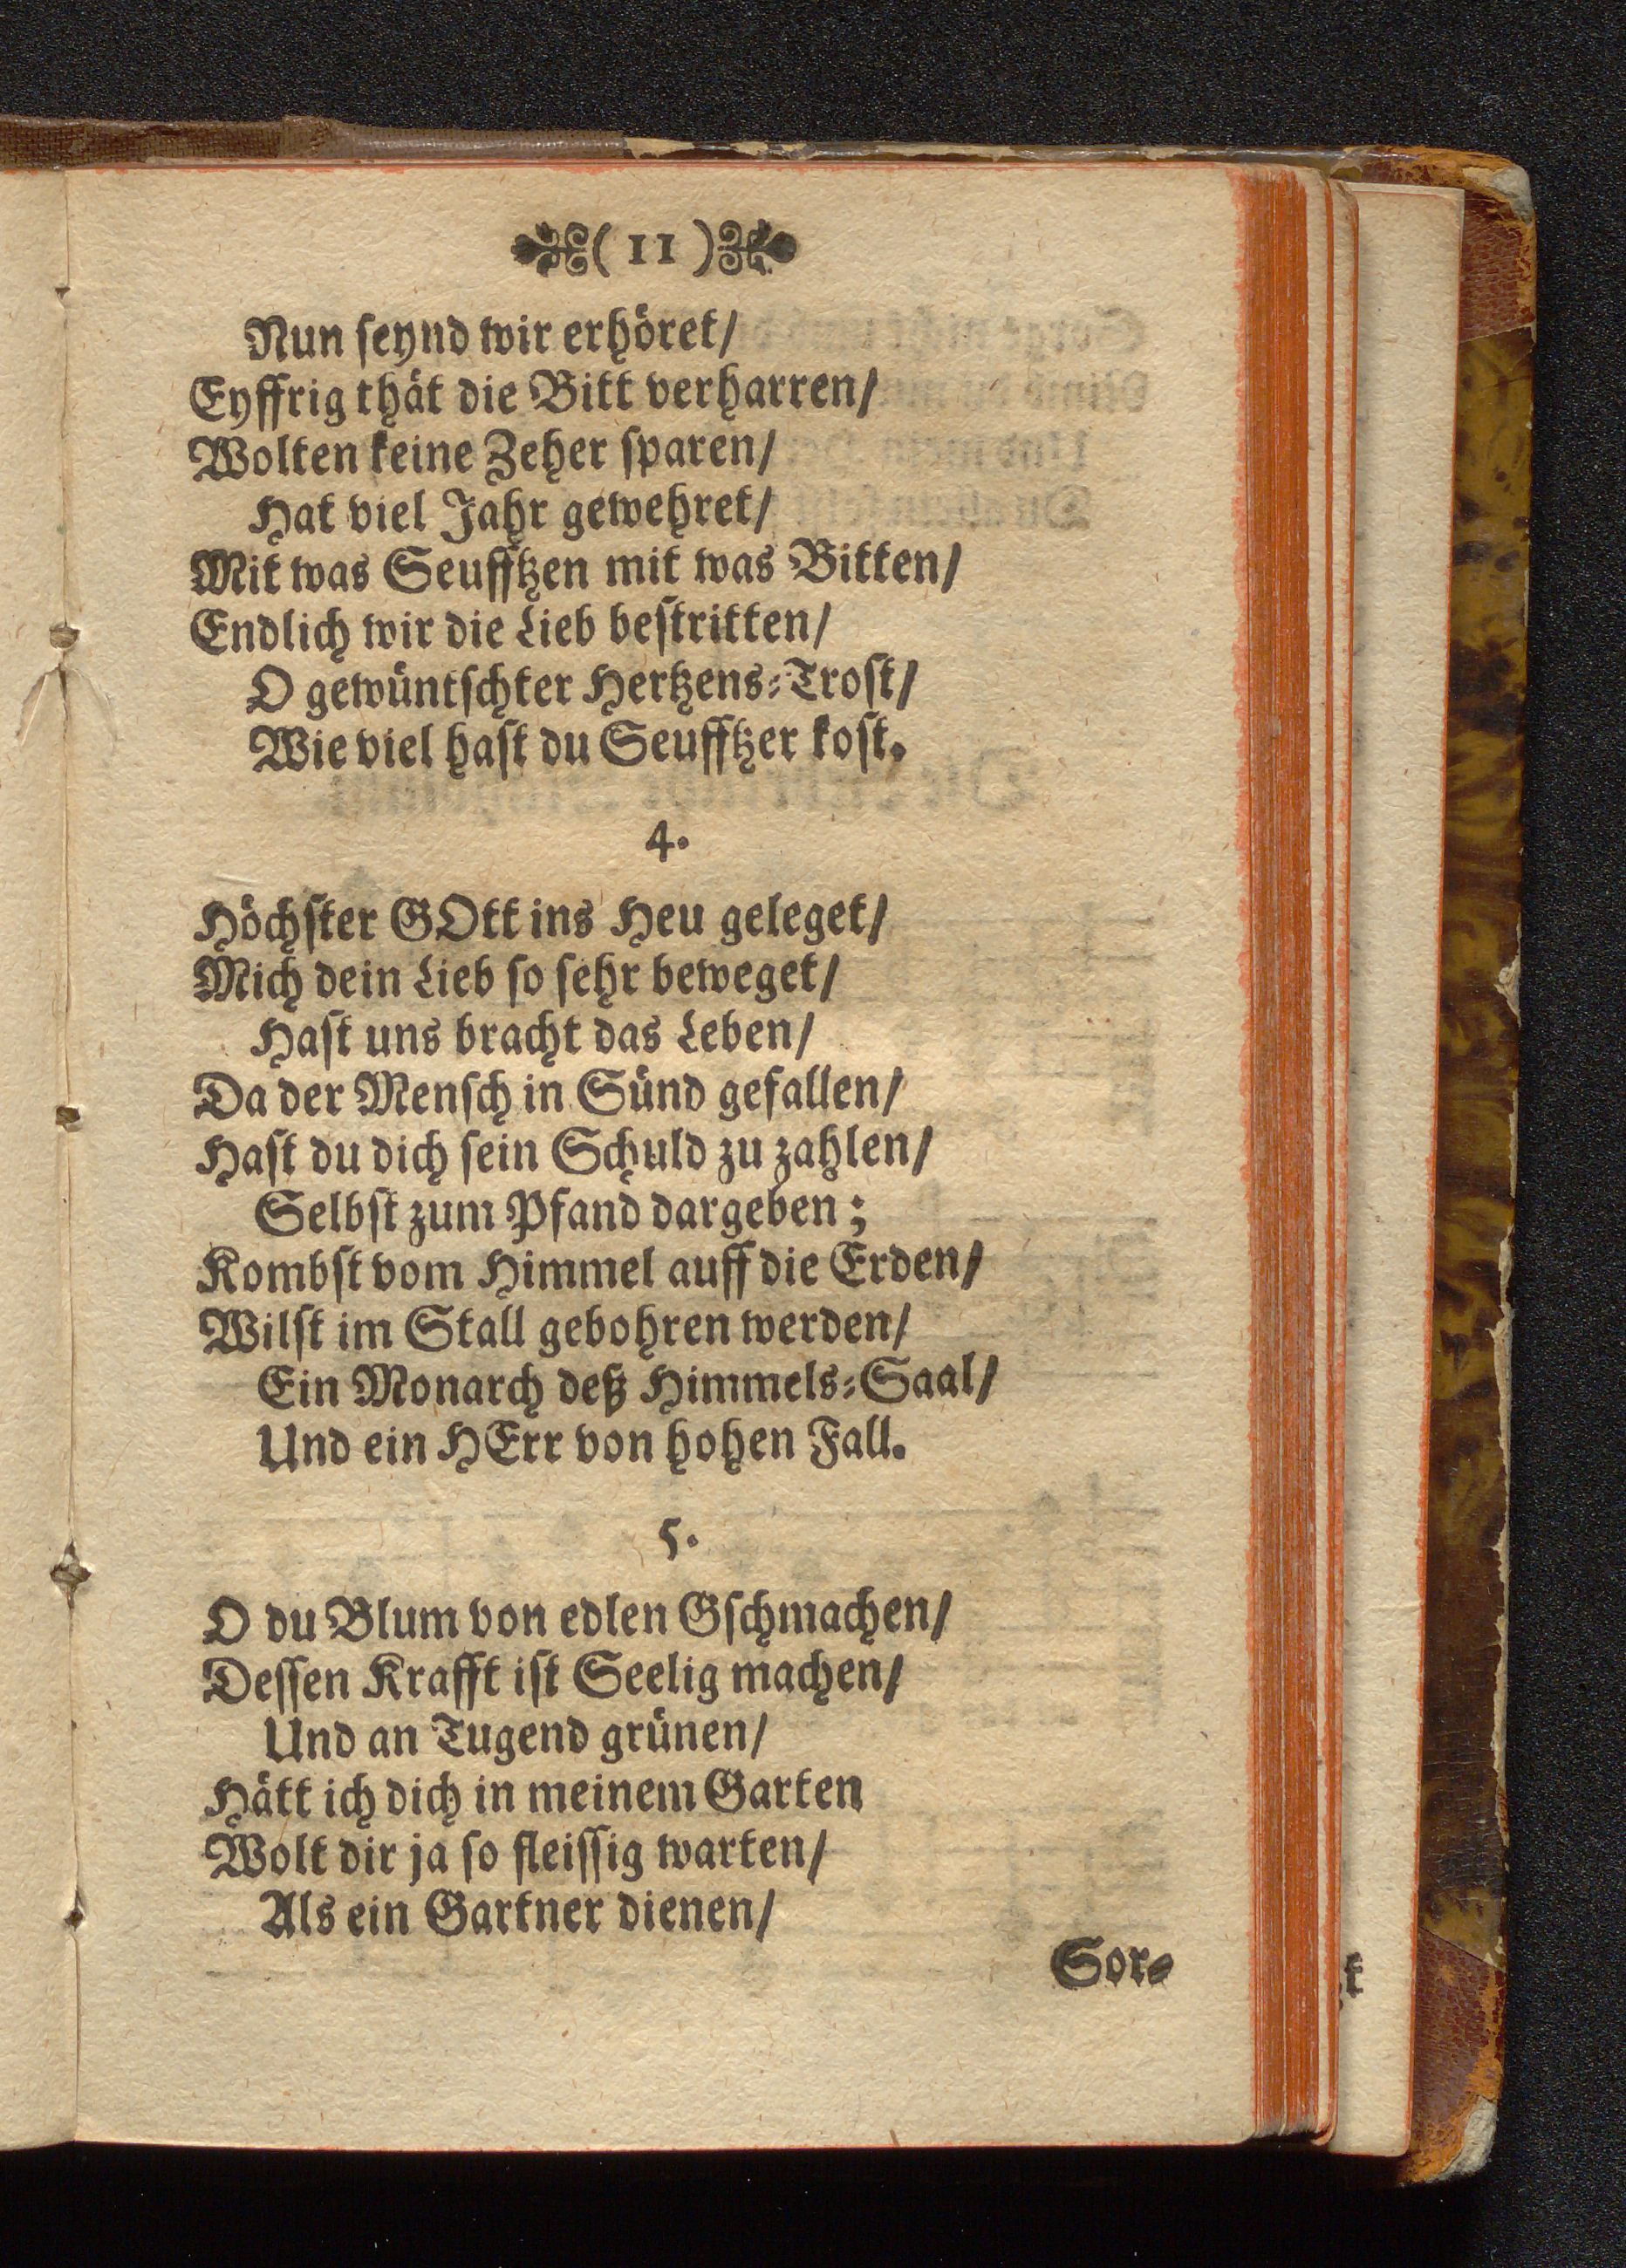 ( 11 )
Nun seynd wir erhöret/
Eyffrig thät die Bitt verharren/
Wolten keine Zeher sparen/
Hat viel Jahr gewehret/
Mit was Seufftzen mit was Bitten/
Endlich wir die Lieb bestritten/
O gewüntschter Hertzens-Trost/
Wie viel hast du Seufftzer kost.
4.
Höchster GOtt ins Heu geleget/
Mich dein Lieb so sehr beweget/
Hast uns bracht das Leben/
Da der Mensch in Sünd gefallen/
Hast du dich sein Schuld zu zahlen/
Selbst zum Pfand dargeben;
Kombst vom Himmel auff die Erden/
Wilst im Stall gebohren werden/
Ein Monarch deß Himmels-Saal/
Und ein HErr von hohen Fall.
5.
O du Blum von edlen Gschmachen/
Dessen Krafft ist Seelig machen/
Und an Tugend grünen/
Hätt ich dich in meinem Garten
Wolt dir ja so fleissig warten/
Als ein Gartner dienen/
Sor-